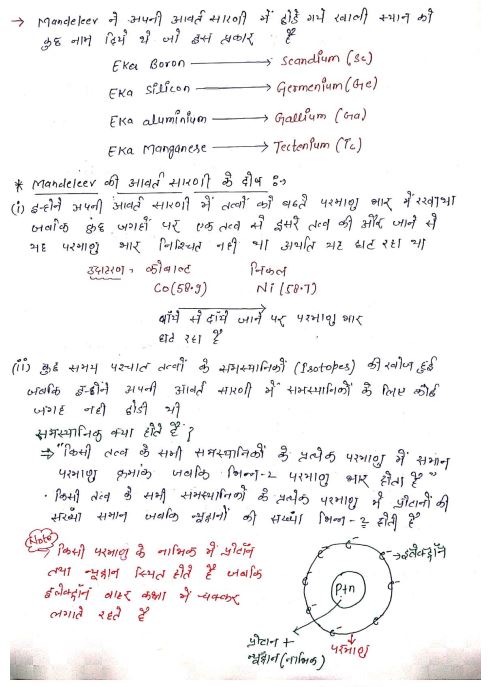 → Mandeleev ने अपनी आवर्त सारणी में छोडे गये खाली स्थान को
कुछ नाम दिये थे जो इस प्रकार हैं
Eka Boron → Scandium (Sc)
Eka Silicon → Germenium (Ge)
Eka aluminium → Gallium (Ga)
Eka Manganese → Tectenium (Tc)
* Mandeleev की आवर्त सारणी के दोष :-
(i) इन्होने अपनी आवर्त सारणी में तत्वों को बढते परमाणु भार में रखा था
जबकि कुछ जगहों पर एक तत्व से दूसरे तत्व की और जाने से
यह परमाणु भार निश्चित नही था अर्थात यह घट रहा था
उदाहरण - कोबाल्ट निकल
Co (58.9) Ni (58.7)
बाँये से दाँये जाने पर परमाणु भार
घट रहा है
(ii) कुछ समय पश्चात तत्वों के समस्थानिकों (Isotopes) की खोज हुई
जबकि इन्होने अपनी आवर्त सारणी में समस्थानिकों के लिए कोई
जगह नही छोडी थी
समस्थानिक क्या होते हैं?
⇒ "किसी तत्व के सभी समस्थानिकों के प्रत्येक परमाणु में समान
परमाणु क्रमांक जबकि भिन्न-२ परमाणु भार होता है"
· किसी तत्व के सभी समस्थानिकों के प्रत्येक परमाणु में प्रोटानों की
संख्या समान जबकि न्यूट्रानों की संख्या भिन्न-२ होती है
Note
→ किसी परमाणु के नाभिक में प्रोटॉन
तथा न्यूट्रान स्थित होते हैं जबकि
इलेक्ट्रॉन बाहर कक्षा में चक्कर
लगाते रहते हैं
→ इलेक्ट्रॉन
e⁻ e⁻ e⁻ e⁻ e⁻ e⁻ e⁻ e⁻
P+n
प्रोटान +
न्यूट्रान (नाभिक)
परमाणु